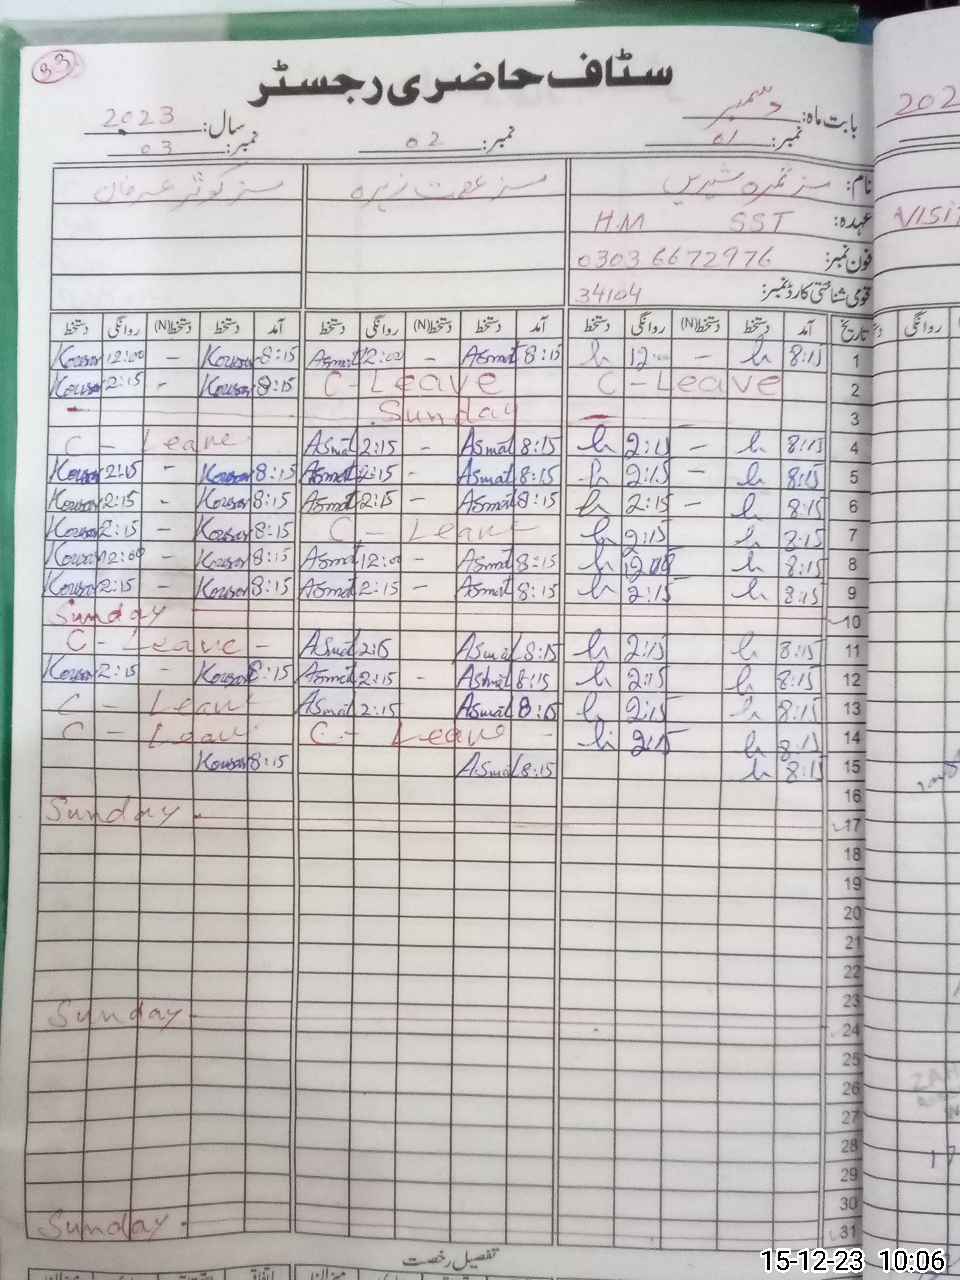 33
سٹاف حاضری رجسٹر
بابت ماہ: دسمبر سال: 2023
نمبر: 01 نمبر: 02 نمبر: 03
نام: مسز ثمرہ شیریں مسز عصمت زہرہ مسز کوثر
عہدہ: SST H.M
فون نمبر: 0303 6672976
قومی شناختی کارڈ نمبر: 34104
تاریخ آمد دستخط دستخط(N) روانگی دستخط آمد دستخط دستخط(N) روانگی دستخط آمد دستخط دستخط(N) روانگی دستخط
Kousar 12:00 - Kousar 8:15 Asmat 12:00 - Asmat 8:15 12:00 - 8:15 1
Kousar 2:15 - Kousar 8:15 C - Leave C - Leave 2
- Sunday - 3
C - Leave Asmat 2:15 - Asmat 8:15 2:15 - 8:15 4
Kousar 2:15 - Kousar 8:15 Asmat 2:15 - Asmat 8:15 2:15 - 8:15 5
Kousar 2:15 - Kousar 8:15 Asmat 2:15 - Asmat 8:15 2:15 - 8:15 6
Kousar 2:15 - Kousar 8:15 C - Leave 2:15 8:15 7
Kousar 12:00 - Kousar 8:15 Asmat 12:00 - Asmat 8:15 12:00 8:15 8
Kousar 2:15 - Kousar 8:15 Asmat 2:15 - Asmat 8:15 2:15 8:15 9
Sunday 10
C - Leave - Asmat 2:15 Asmat 8:15 2:15 8:15 11
Kousar 2:15 - Kousar 8:15 Asmat 2:15 - Asmat 8:15 2:15 8:15 12
C - Leave Asmat 2:15 Asmat 8:15 2:15 8:15 13
C - Leave C - Leave - 2:15 8:15 14
Kousar 8:15 Asmat 8:15 8:15 15
16
Sunday 17
18
19
20
21
22
23
Sunday 24
25
26
27
28
29
30
Sunday 31
تفصیل رخصت
202
VISIT
روانگی
15-12-23 10:06